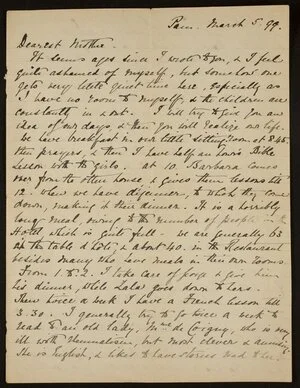 Pau. March 5. 99.
Dearest Mother
It seems ages since I wrote to you, & I feel
quite ashamed of myself, but somehow one
gets very little quiet time here, especially as
I have no room to myself, & the children are
constantly in & out. I will try to give you an
idea of our days & then you will realize our life.
We have breakfast in our little sitting room at 8.45,
then prayers, & then I have half an hour's Bible
lesson with the girls. at 10 Barbara comes
over from the other house & gives them lessons till
12. when we have déjeuner, to which they come
down, making it their dinner. It is a horribly
long meal, owing to the number of people in
Hotel which is quite full - we are generally 63
at the table d'hôte, & about 40 in the Restaurant
besides many who have meals in their own rooms.
From 1 to 2. I take care of & give him
his dinner, while Lala goes down to hers.
Then twice a week I have a French lesson till
3.30. I generally try to go twice a week to
read to an old lady. Mrs de who is very
ill with rheumatism, but most clever & amusing.
She is English, & likes to have stories read to her